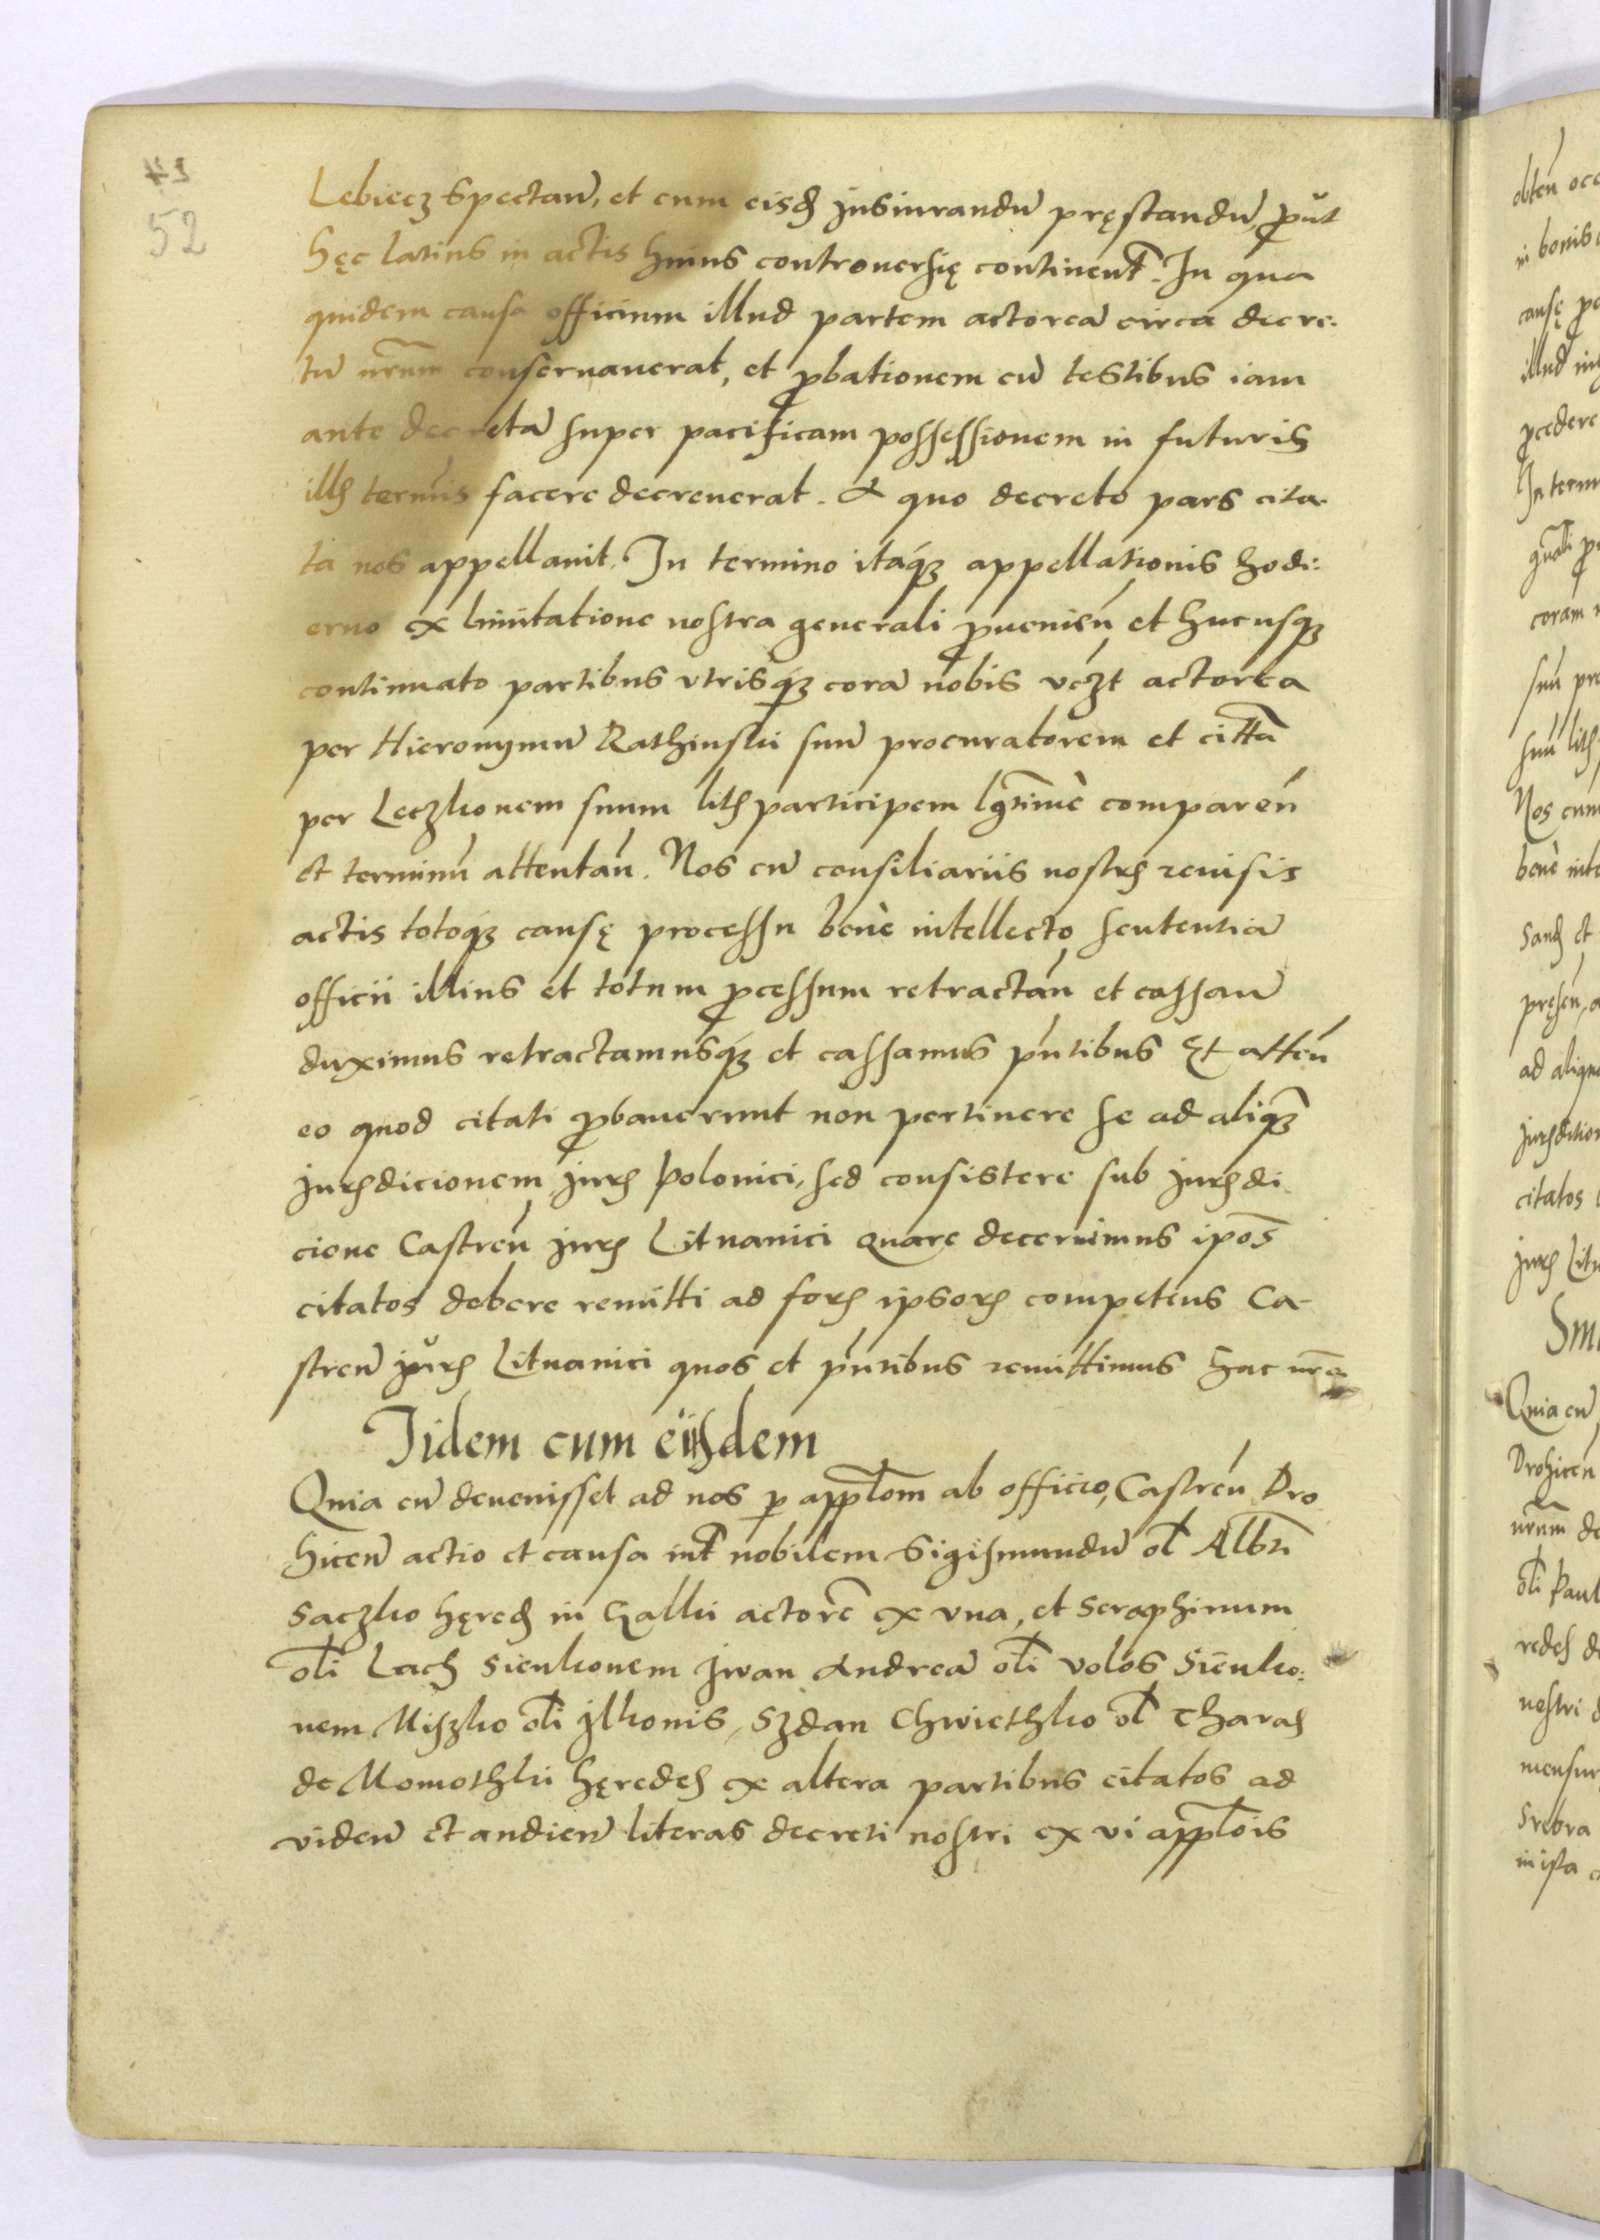 43
52
Lebiecz Spectan̄, et cum eisd̄ jusiurandū pręstandū, ꝓut
hęc latius in actis huius controuersię continent᷑. In qua
quidem causa officium illud partem actoreā circa decre-
tū nr̄um conseruauerat, et ꝓbationem cū testibus iam
ante decretā super pacificam possessionem in futuris
illis terminis facere decreuerat. A quo decreto pars cita-
ta nos appellauit. In termino itaqꝫ appellationis hodi:
erno ex limitatione nostra generali ꝓuenien̄ et hucusqꝫ
continuato partibus vtrisqꝫ corā nobis vczt actorea
per Hieronymū Rathinski suū procuratorem et citta
per Leczkonem suum litis participem lgr̄time comparen̄
et terminū attentan̄. Nos cū consiliariis nostris reuisis
actis totoqꝫ causę processu bene intellecto sententiā
officii illius et totum ꝓcessum retractan̄ et cassan̄
duximus retractamusqꝫ et cassamus pn̄tibus Et atten̄
eo quod citati ꝓbauerunt non pertinere se ad aliqꝫ
jurisdicionem juris Polonici, sed consistere sub jurisdi
cione Castren̄ juris Lituanici quare decernimus ipo̅s
citatos debere remitti ad foru ipsoru competens Ca-
stren̄ juris Lituanici quos et pn̄tibus remittimus hac nr̄a
Iidem cum eiisdem
Quia cū deuenisset ad nos p appl̄om ab officio, Castren̄ Dro
hicen̄ actio et causa int᷑ nobilem Sigismundū ol̄ Alb̄ri
Saczko hęred̄ in Galki actorē ex vna, et Seraphinum
ol̄i Lach Sienkonem Jwan Andreā ol̄i Volos Sienko:
nem Miszko ol̄i Jlkonis, Szdan Chwiethko ol̄ Tharas
de Momothki hęredes ex altera partibus citatos ad
viden̄ et audien̄ literas decreti nostri ex vi appl̄ois